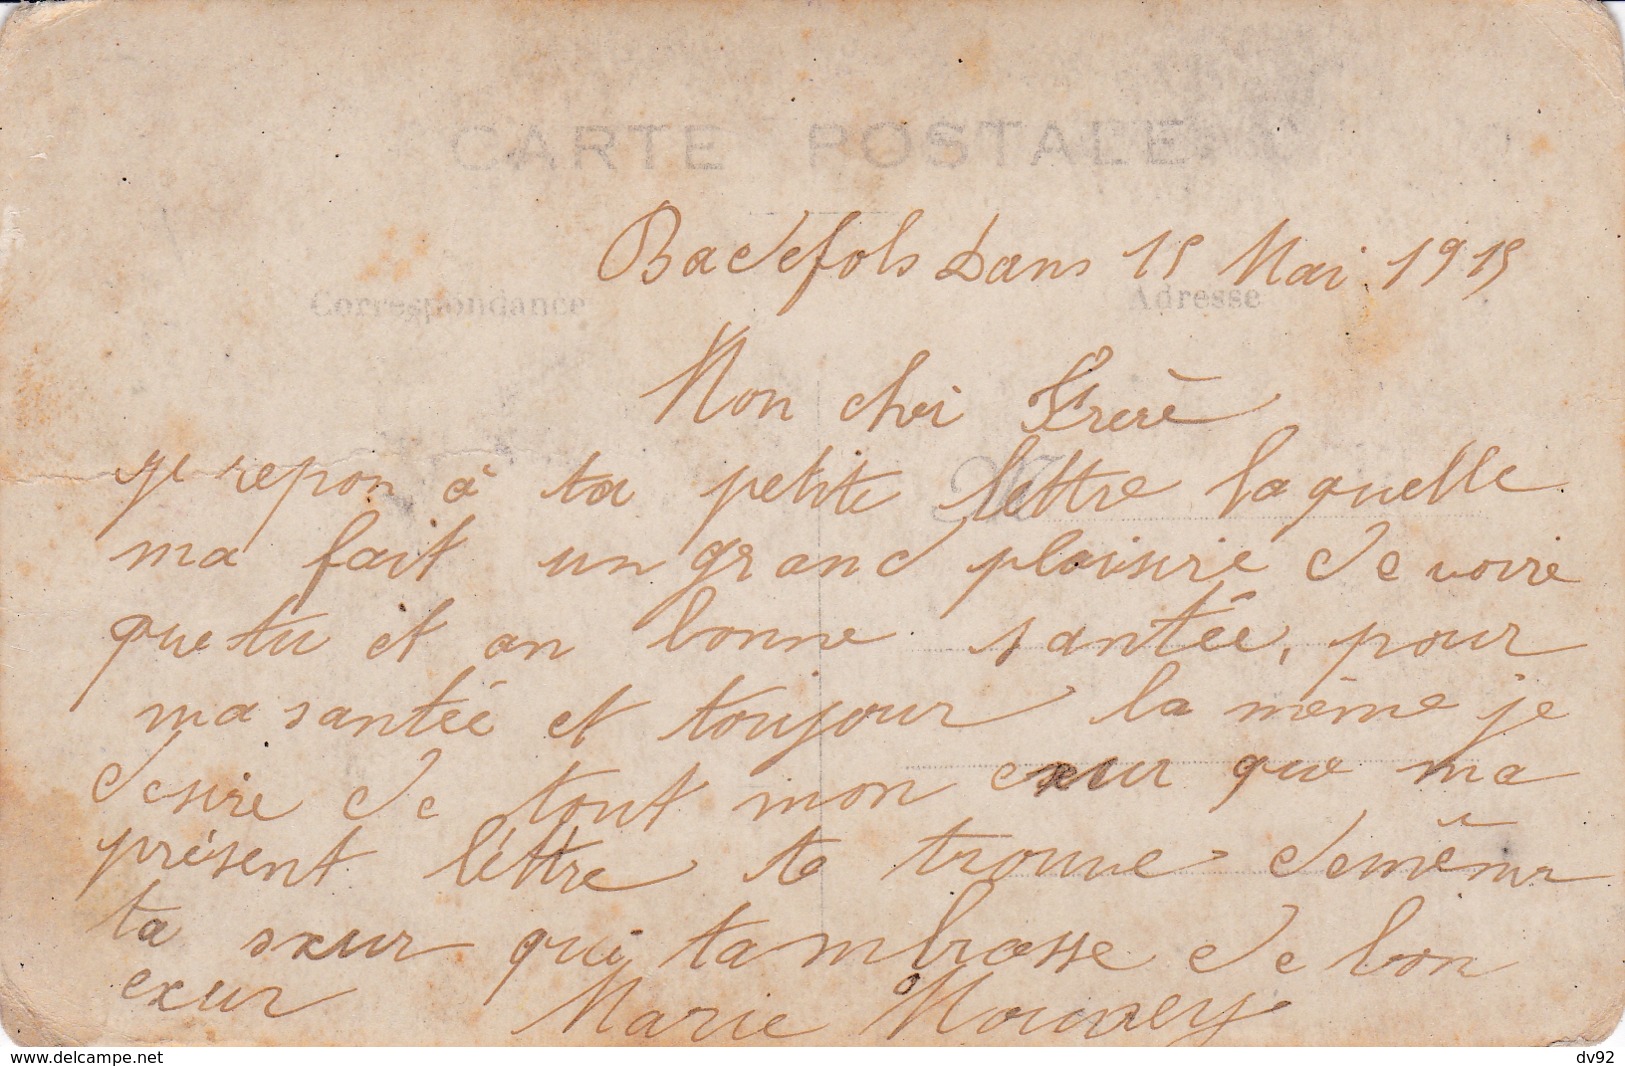 CARTE POSTALE
Correspondance
Adresse
M
Badefols Dans 15 Mai 1915
Mon cher Frère
je repon à ta petite lettre laquelle
ma fait un grand plaisire de voire
que tu et an bonne santée, pour
ma santée et toujour la même je
desire de tout mon cœur que ma
présent lettre te trouve de même
ta sœur qui tambrasse de bon
cœur Marie
www.delcampe.net
dv92